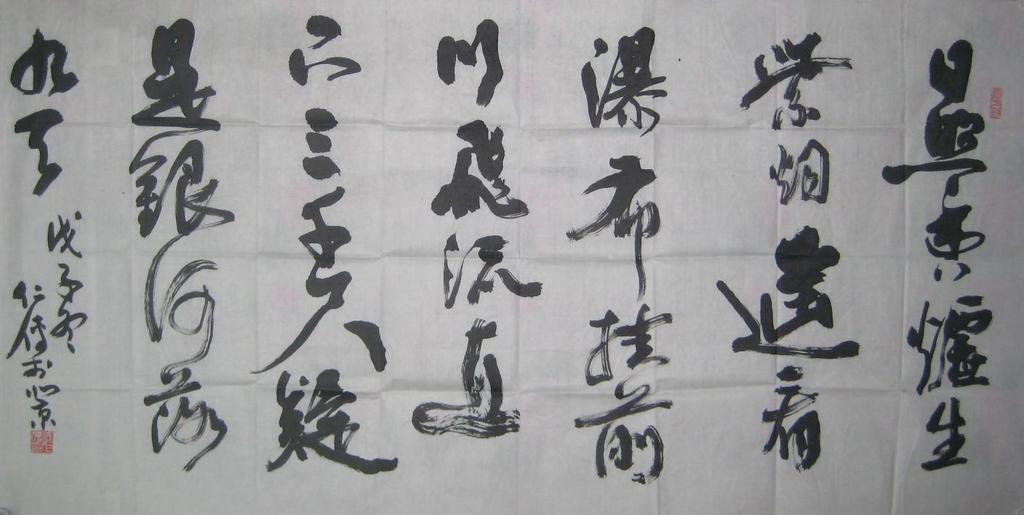 日照香爐生
紫烟遥看
瀑布挂前
川飛流直
下三千尺疑
是銀河落
九天
戊子冬
仁傳於北京